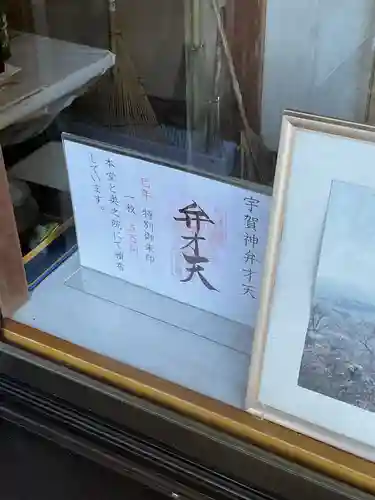 宇賀神弁才天
弁才天
巳年 特別御朱印
一枚 五百円
本堂と奥之院にて頒布
しています。